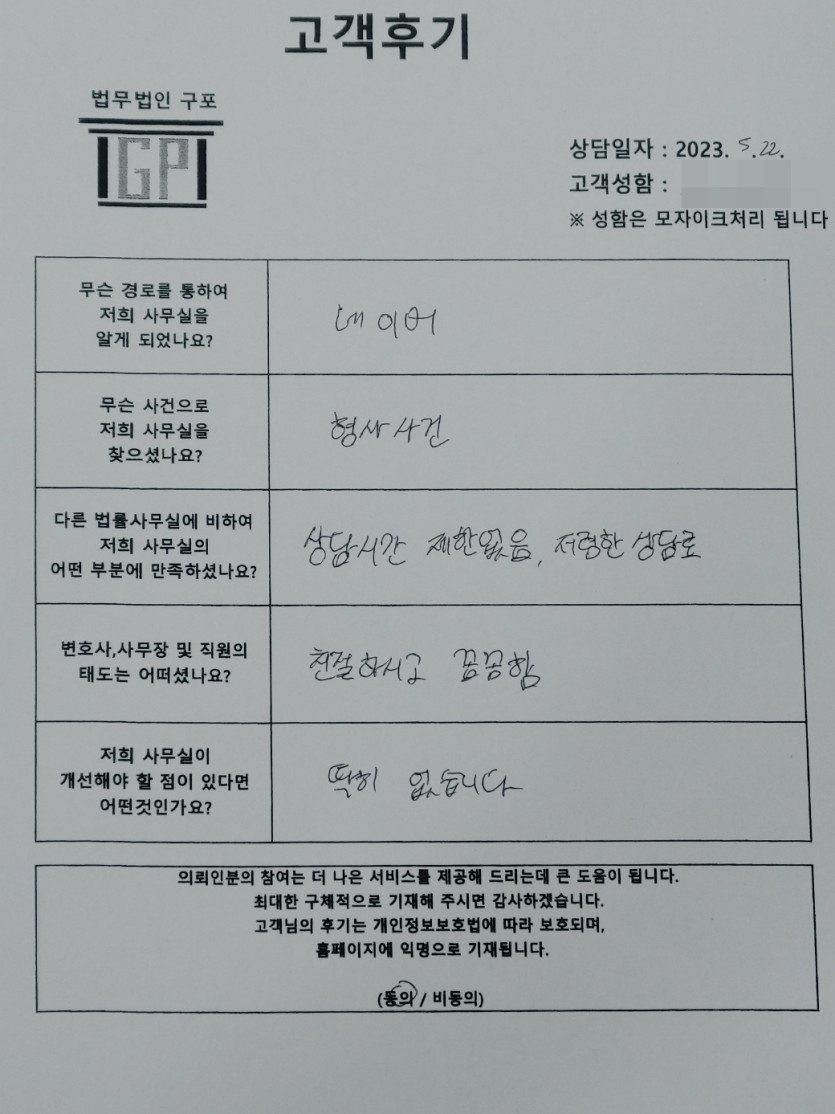 고객후기
법무법인 구포
GP
상담일자 : 2023. 5.22.
고객성함 :
※ 성함은 모자이크처리 됩니다
무슨 경로를 통하여
저희 사무실을
알게 되었나요?
네이버
무슨 사건으로
저희 사무실을
찾으셨나요?
형사사건
다른 법률사무실에 비하여
저희 사무실의
어떤 부분에 만족하셨나요?
상담시간 제한없음, 저렴한 상담료
변호사,사무장 및 직원의
태도는 어떠셨나요?
친절하시고 꼼꼼함
저희 사무실이
개선해야 할 점이 있다면
어떤것인가요?
딱히 없습니다
의뢰인분의 참여는 더 나은 서비스를 제공해 드리는데 큰 도움이 됩니다.
최대한 구체적으로 기재해 주시면 감사하겠습니다.
고객님의 후기는 개인정보보호법에 따라 보호되며,
홈페이지에 익명으로 기재됩니다.
(동의 / 비동의)